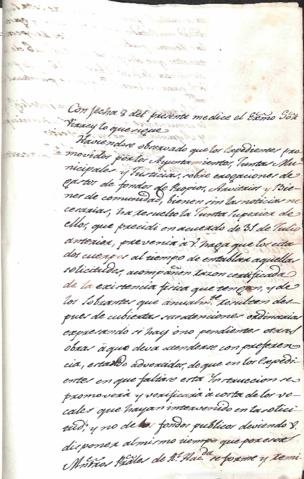 Con fecha 8 del presente me dice el Exmo Sor
Virrey lo que sigue
Haviendose observado que los Expedientes pro
movidos por los Ayuntamientos, Juntas Mu
nicipales y Justicias, sobre erogaciones de
gastos de fondos de Propios, Arvitrios y Bie
nes de comunidad, bienen sin las noticias ne
cesarias, ha resuelto la Junta Superior de
ellos, que precido en acuerdo de 31 de Julio
anterior, prevenir á V. haga que los cita
dos cuerpos al tiempo de entablar aquellas
solicitudes, acompañen razon certificada
de la existencia fisica que tengan, y de
los sobrantes que anualmte. resulten des
pues de cubiertas sus atenciones ordinarias
expresando si hay ó no pendientes otras
obras á que deva atenderse con preferen
cia, estando advertidos, de que en los Expedi
entes en que faltare esta Instruccion se
promoverá y verificará á costa de los vo
cales que hayan intervenido en la solici
tud, y no de los fondos publicos deviendo V.
disponer al mismo tiempo que por esos
Mintros Rales de Rl. Hacda se forme y remi